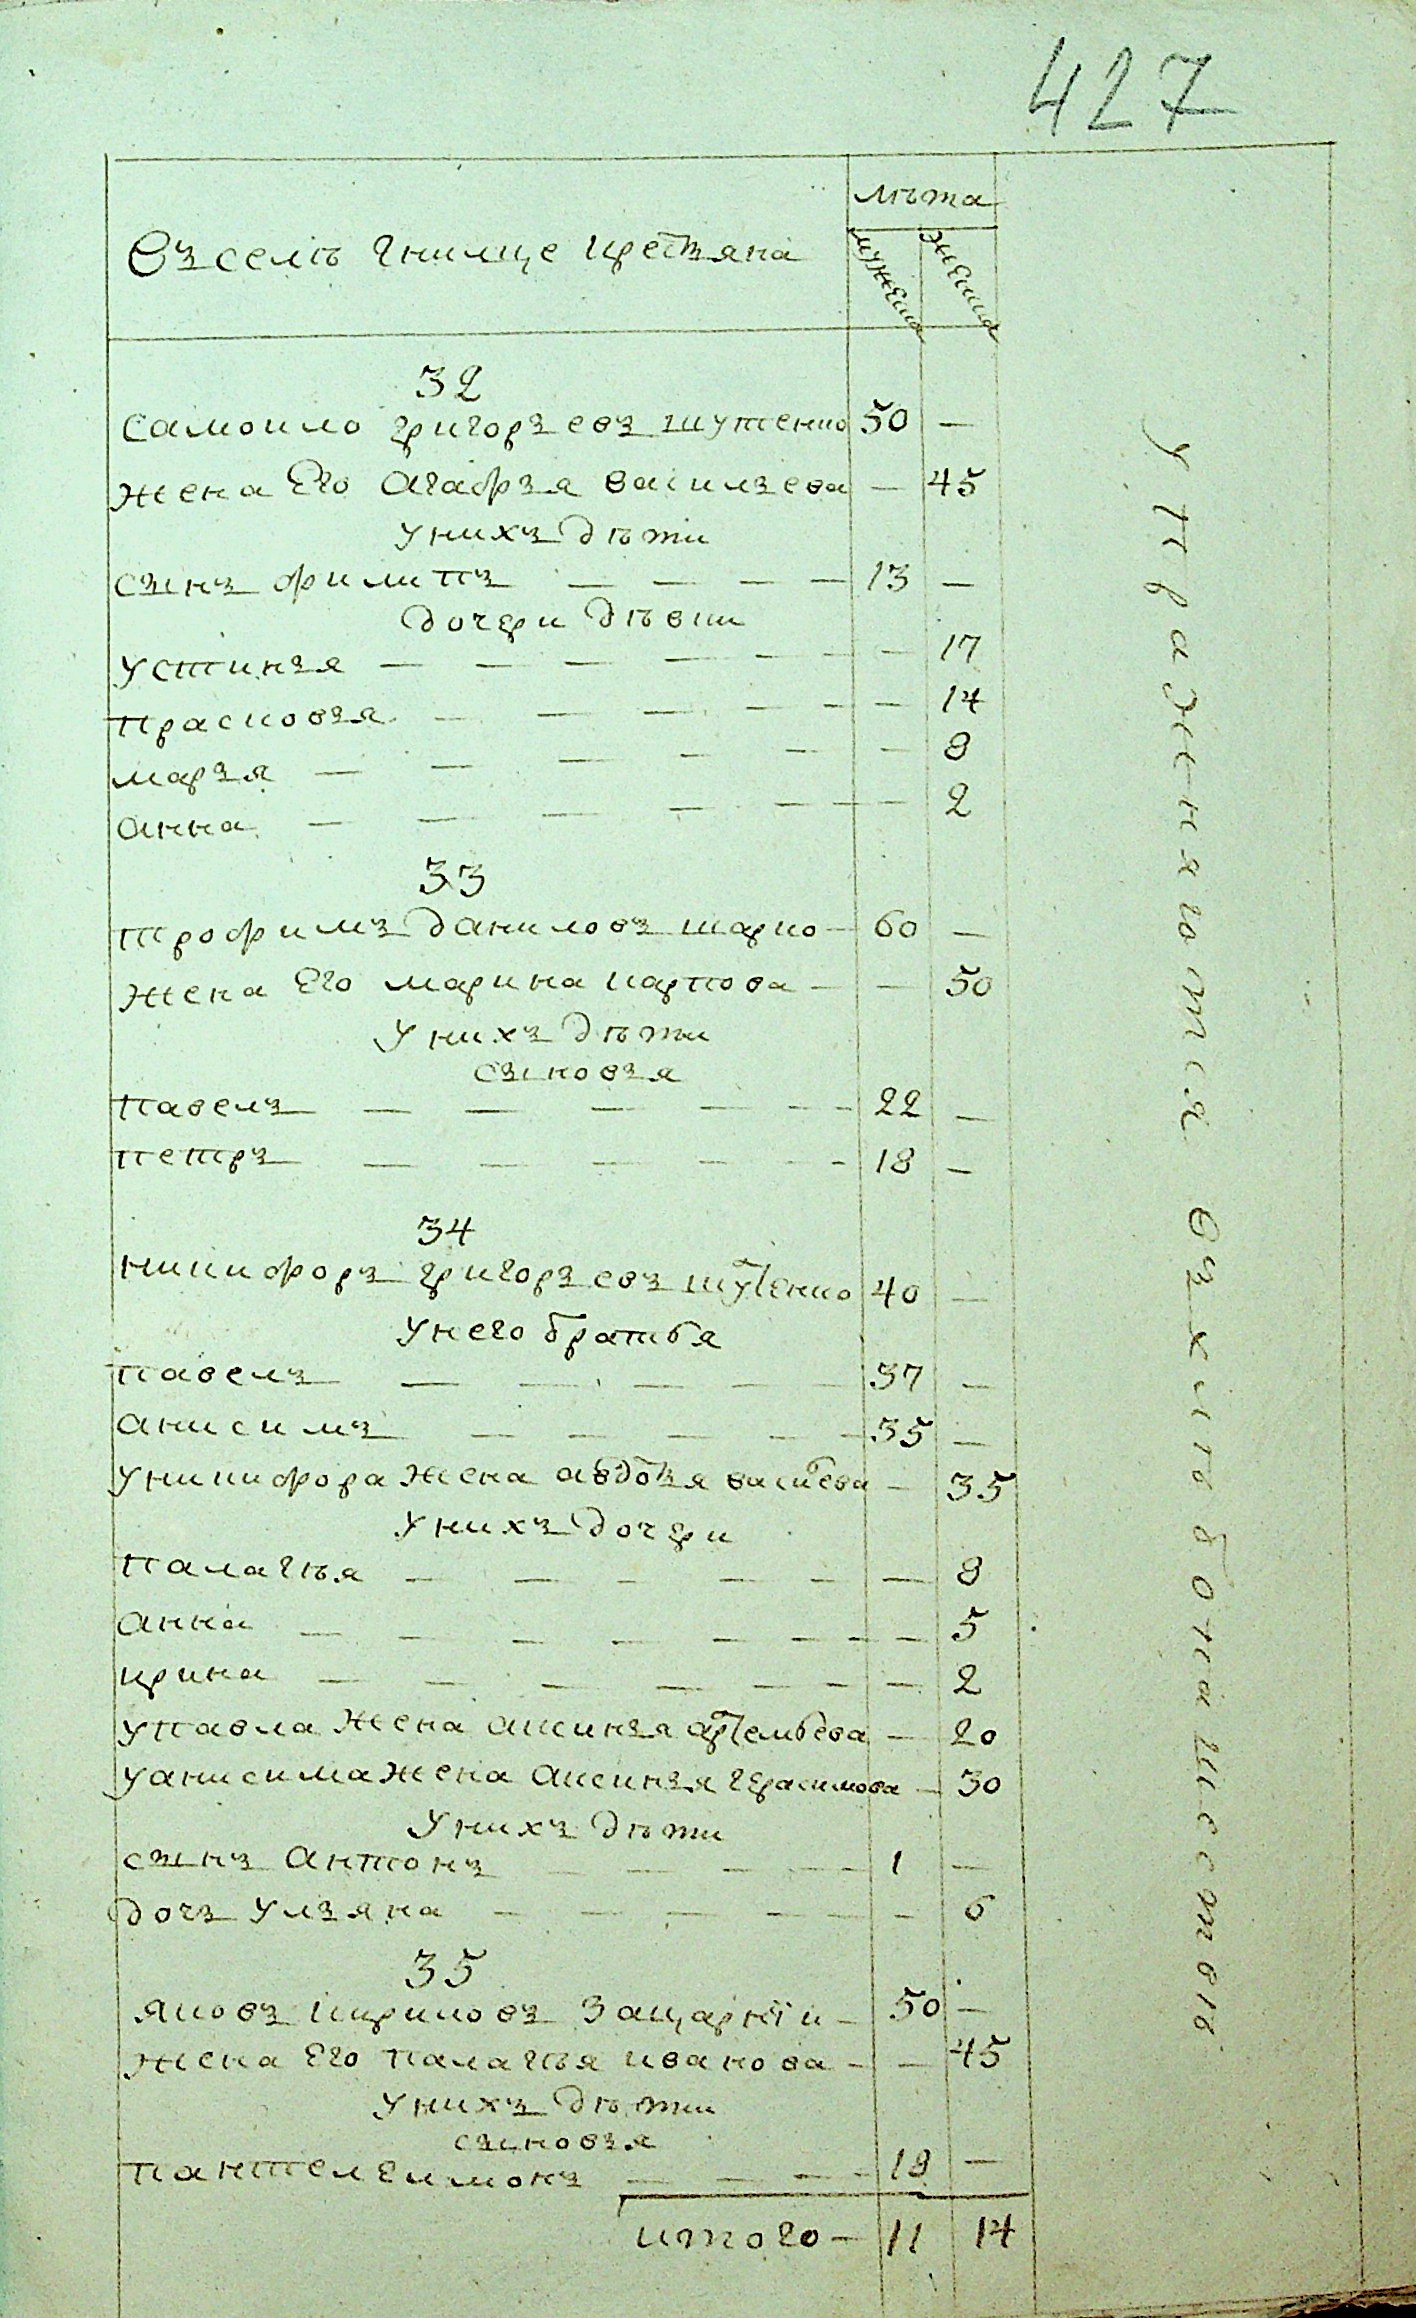 427
лѣта
Въ селѣ Гнилще крестьяна
мужеска
женска
32
Самоило григорьевъ шутенко 50 —
жена Его Агафья васильева — 45
У нихъ дѣти
сынъ филипъ — — — — 13 —
дочери дѣвки
устинья — — — — — — 17
прасковья — — — — — — 14
марья — — — — — — 8
Анна — — — — — — — 2
33
трофимъ Даниловъ шарко — 60 —
жена Его марина карпова — — 50
У нихъ дѣти
сыновья
павелъ — — — — — — 22 —
петръ — — — — — — 18 —
34
никифоръ григорьевъ шутенко 40 —
У него братья
павелъ — — — — 37 —
анисимъ — — — — — 35 —
у никифора жена авдотья васильева — 35
У нихъ дочери
палагѣя — — — — — — 8
анна — — — — — — — — 5
ирина — — — — — — — 2
у павла жена аксинья артемьева — 20
у анисима жена аксинья герасимова — 30
У нихъ дѣти
сынъ Антонъ — — — — 1 —
дочь ульяна — — — — — — 6
35
яковъ кириловъ Зацаркни — 50 —
жена Его палагѣя иванова — — 45
У нихъ дѣти
сыновья
пантелеимонъ — — — — 18 —
итого — 11 14
упражняются въ хлѣбопашествѣ